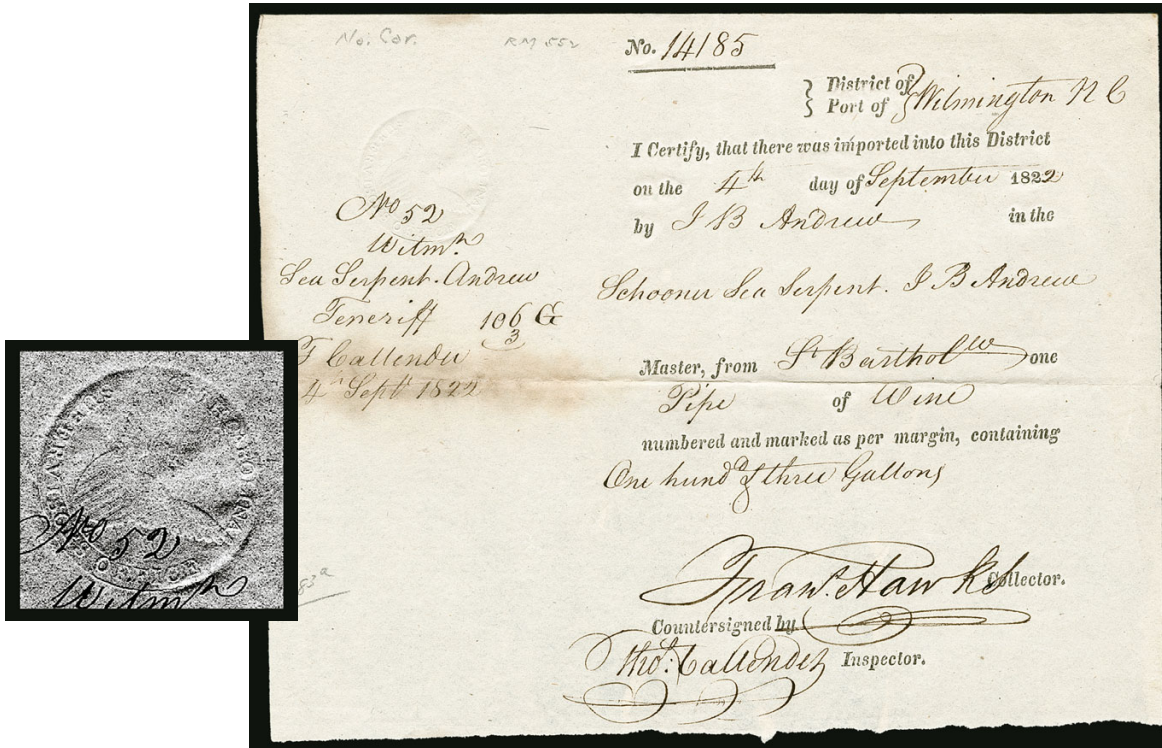 No. Car. RM 552
No. 14185
District of
Port of
Wilmington N C
I Certify, that there was imported into this District
on the 4th day of September 1822
by J B Andrew in the
Schooner Sea Serpent. J B Andrew
Master, from St Bartholw one
Pipe of Wine
numbered and marked as per margin, containing
One hundd & three Gallons
Collector.
Countersigned by
Thos. Callender Inspector.
No 52
Wilmn
Sea Serpent. Andrew
Teneriff 106 G
3
T Callender
4th Sept 1822
No 52
Wilmn